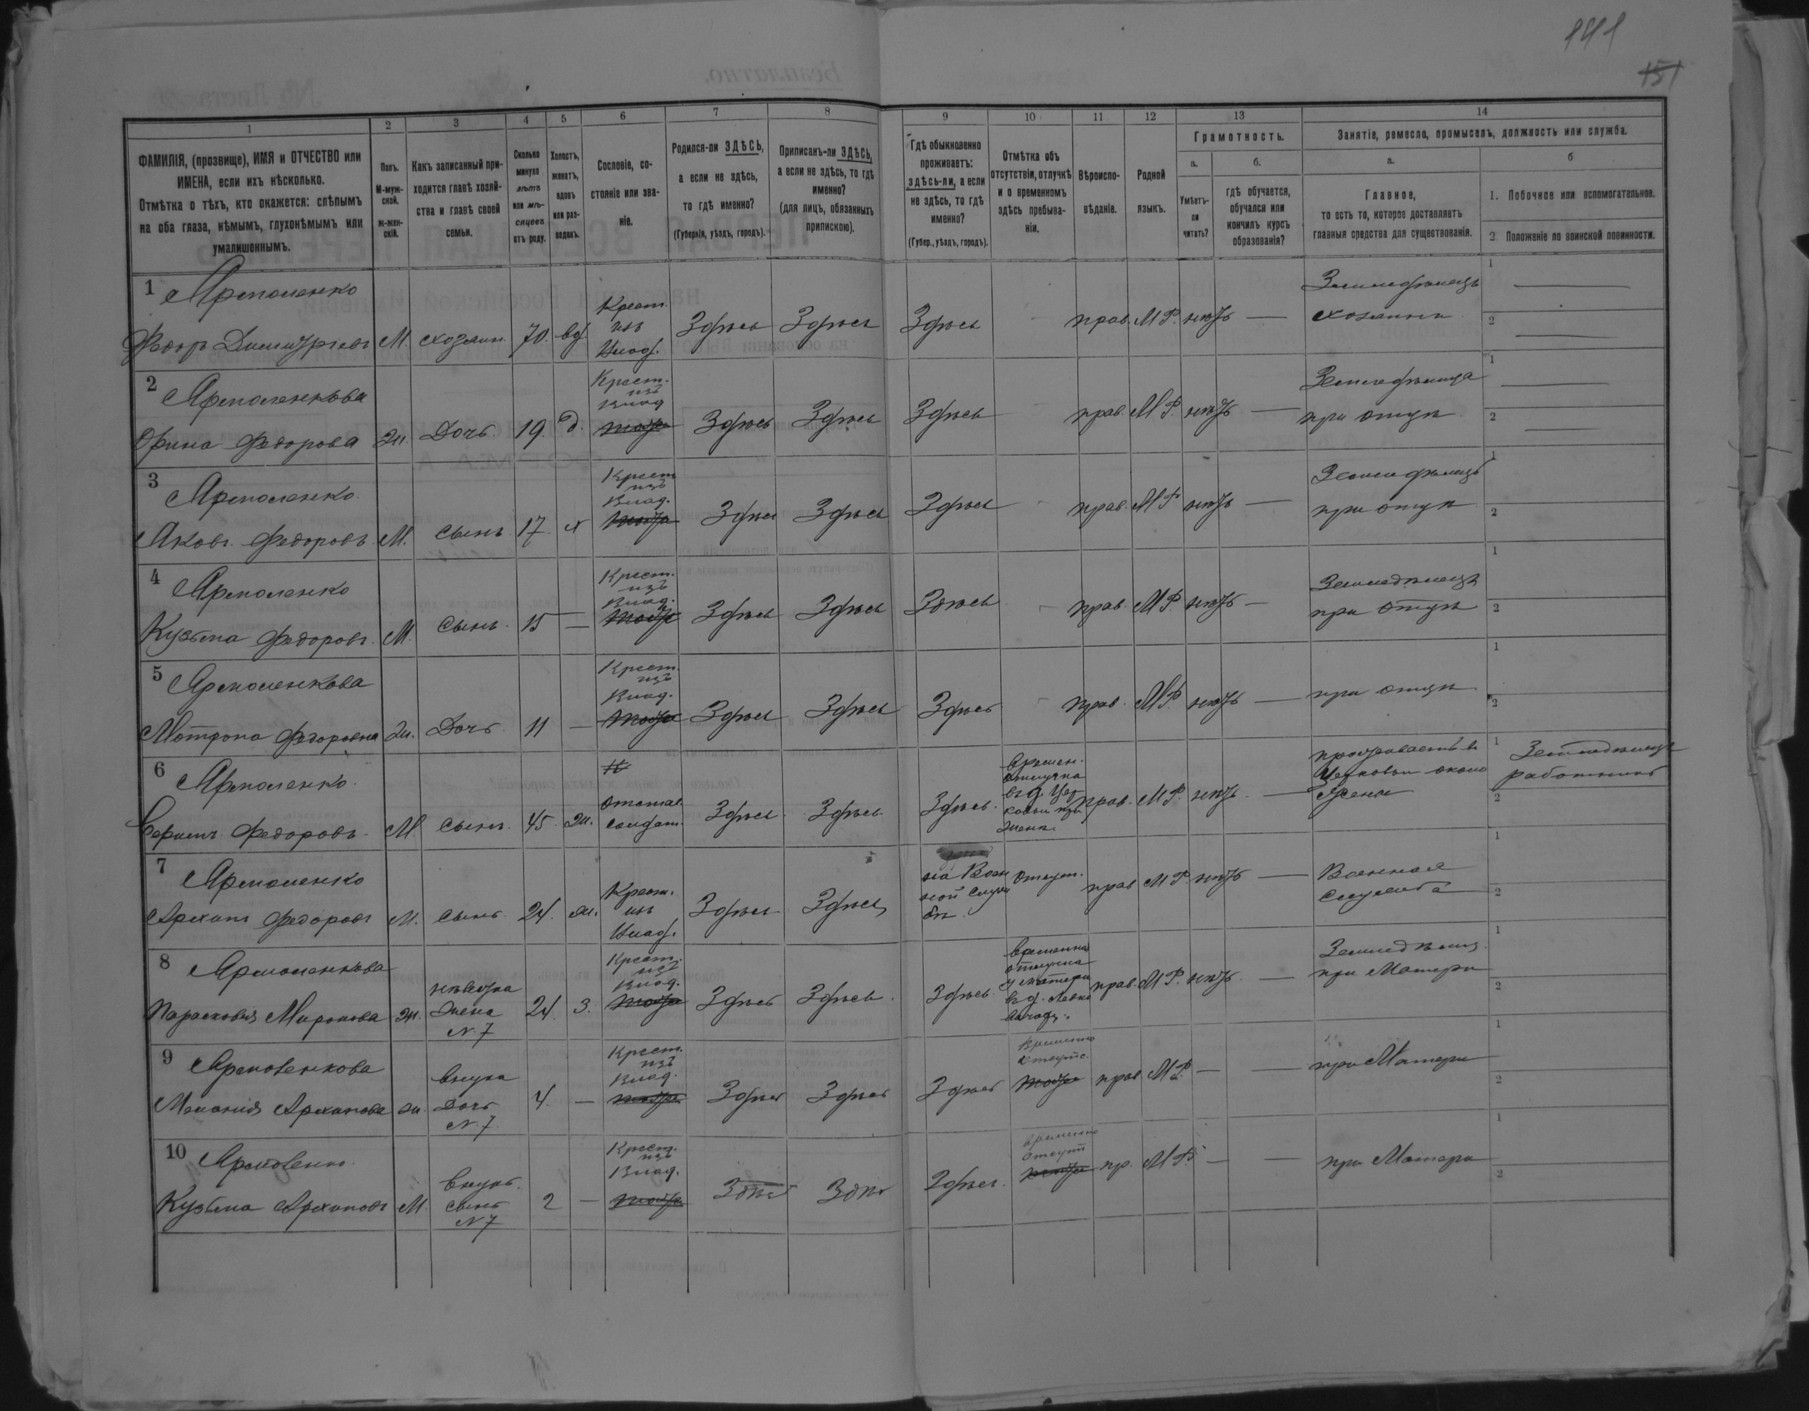 141
151
1 2 3 4 5 6 7 8 9 10 11 12 13 14
ФАМИЛІЯ, (прозвище), ИМЯ и ОТЧЕСТВО или ИМЕНА, если ихъ нѣсколько.
Отмѣтка о тѣхъ, кто окажется: слѣпымъ на оба глаза, нѣмымъ, глухонѣмымъ или умалишеннымъ.
Полъ. М-мужской. Ж-женскій.
Какъ записанный приходится главѣ хозяйства и главѣ своей семьи.
Сколько минуло лѣтъ или мѣсяцевъ отъ роду.
Холостъ, женатъ, вдовъ или разведенъ.
Сословіе, состояніе или званіе.
Родился-ли ЗДѢСЬ, а если не здѣсь, то гдѣ именно?
(Губернія, уѣздъ, городъ).
Приписанъ-ли ЗДѢСЬ, а если не здѣсь, то гдѣ именно?
(для лицъ, обязанныхъ припискою).
Гдѣ обыкновенно проживаетъ: здѣсь-ли, а если не здѣсь, то гдѣ именно?
(Губер., уѣздъ, городъ).
Отмѣтка объ отсутствіи, отлучкѣ и о временномъ здѣсь пребываніи.
Вѣроисповѣданіе.
Родной языкъ.
Грамотность.
а. Умѣетъ-ли читать?
б. гдѣ обучается, обучался или кончилъ курсъ образованія?
Занятіе, ремесло, промыселъ, должность или служба.
а. Главное, то есть то, которое доставляетъ главныя средства для существованія.
б
1. Побочное или вспомогательное.
2 Положеніе по воинской повинности.
1 Ярмоленко
Федоръ Димитріевъ М. хозяин. 70. вд. Крест. изъ Влад. Здѣсь Здѣсь Здѣсь прав. М.Р. нѣтъ — Земледѣлецъ хозяинъ
2 Ярмоленкова
Орина Федорова Ж. Дочь 19. д. Крест. изъ Влад Здѣсь Здѣсь Здѣсь прав. М.Р. нѣтъ — при отцѣ
3 Ярмоленко
Яковъ Федоровъ М. сынъ 17. х Крест изъ Влад. Здѣсь Здѣсь Здѣсь прав. М.Р нѣтъ — Земледѣлецъ при отцѣ
4 Ярмоленко
Кузьма Федоровъ М. сынъ. 15 — Крест. изъ Влад. Здѣсь Здѣсь Здѣсь прав. М.Р нѣтъ — Земледѣлецъ при отцѣ
5 Ярмоленкова
Мотрона Федоровна Ж. Дочь 11 — Крест. изъ Влад. Здѣсь Здѣсь Здѣсь прав. М.Р. нѣтъ — при отцѣ
6 Ярмоленко.
Федоровъ М. сынъ. 45. Ж. солдат. Здѣсь Здѣсь Здѣсь. времен. отлучка прав. М.Р. нѣтъ — проживаетъ въ
7 Ярмоленко
Архипъ Федоровъ М. сынъ 24. ж. Крест. изъ Влад. Здѣсь Здѣсь на Воен ной служ бѣ. отсут. прав М.Р. нѣтъ — Военная служба
8 Ярмоленкова
Парасковія Миронова Ж. невѣстка Жена N 7 24. З. Крест. изъ Влад. Здѣсь Здѣсь. Здѣсь. временна отлучка у матери прав. М.Р. нѣтъ — при Матери
9 Ярмоленкова
Меланія Архипова Ж. внука Дочь N 7 4. — Крест. изъ Влад. Здѣсь Здѣсь Здѣсь временно отсутс прав М.Р — — при Матери
10
Кузьма Архиповъ М внукъ. сынъ N 7 2 — Крест. изъ Влад. Здѣсь Здѣсь Здѣсь. временно отсутт пр. М.Р — — при Матери